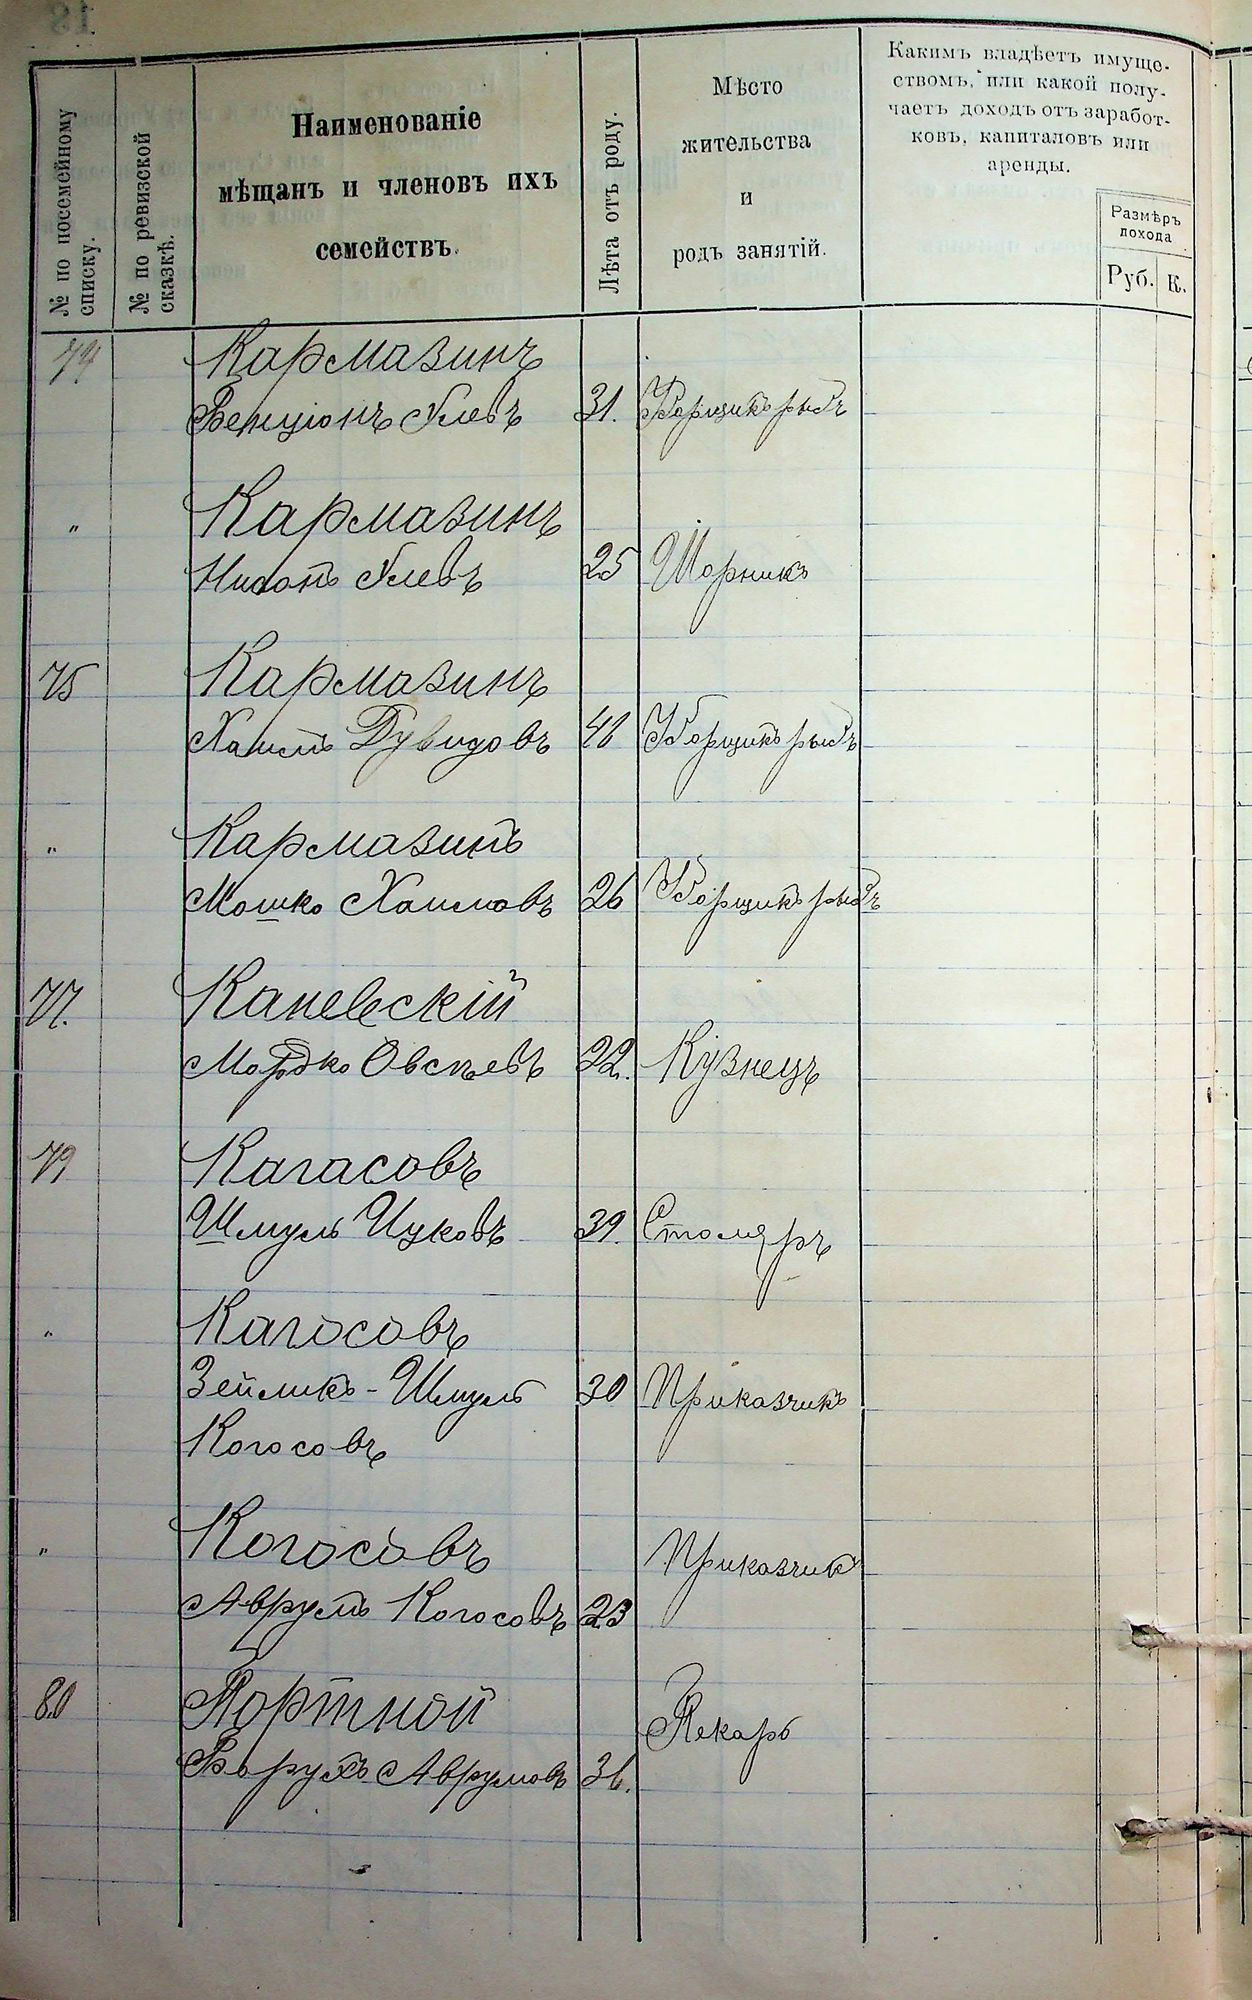 № по посемейному
списку.
№ по ревизской
сказкѣ.
Наименованіе
мѣщанъ и членовъ ихъ
семействъ.
Лѣта отъ роду.
Мѣсто
жительства
и
родъ занятій.
Какимъ владѣетъ имуще-
ствомъ, или какой полу-
чаетъ доходъ отъ заработ-
ковъ, капиталовъ или
аренды.
Размѣръ
дохода
Руб. К.
74 Кармазинъ
Бенціонъ Улевъ 31. Уборщикъ рыбъ
" Кармазинъ
Нисонъ Улевъ 25 Шорникъ
75 Кармазинъ
Хаимъ Дувидовъ 48 Уборщикъ рыбъ
" Кармазинъ
Мошко Хаимовъ 26 Уборщикъ рыбъ
77. Каневскій
Мордко Овсѣевъ 22. Кузнецъ
79 Кагасовъ
Шмуль Ицковъ 39. Столяръ
" Кагосовъ
Зейликъ-Шмуль 30 Приказчикъ
Когосовъ
" Когосовъ Приказчикъ
Аврумъ Когосовъ 23
80 Портной Пекарь
Борухъ Аврумовъ